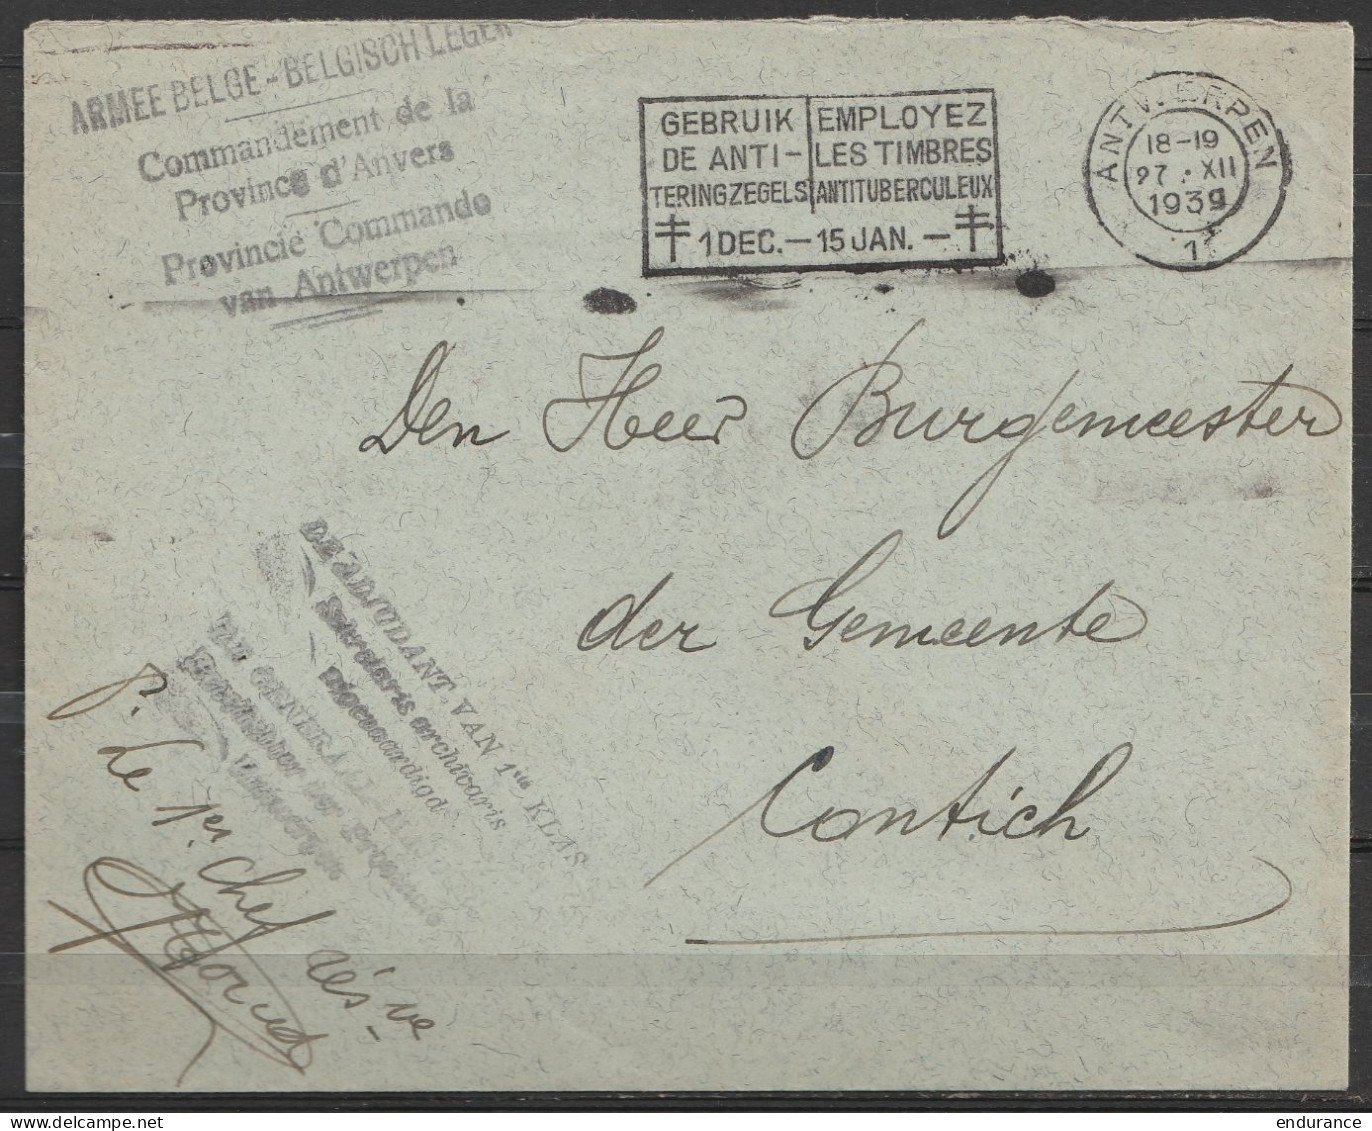 ARMEE BELGE - BELGISCH LEGER
Commandement de la
Province d'Anvers
Provincie Commando
van Antwerpen
GEBRUIK
DE ANTI-
TERINGZEGELS
EMPLOYEZ
LES TIMBRES
ANTITUBERCULEUX
1 DEC. — 15 JAN. —
ANTWERPEN
18-19
27 . XII
1939
Den Heer Burgemeester
der Gemeente
Contich
DE ADJUDANT VAN 1ste KLAS
Sekretaris archivaris
eigenaardigd
VAN GENERAAL
P.
Le 1er Chef
endurance
delcampe.net